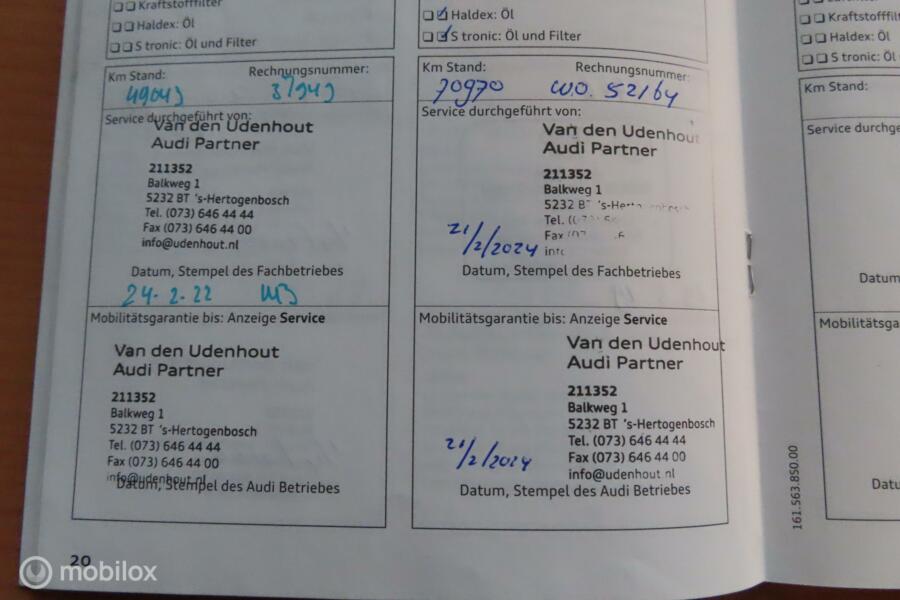 Kraftstofffilter
Haldex: Öl
S tronic: Öl und Filter
Km Stand:
Rechnungsnummer:
49049
37949
Service durchgeführt von:
Van den Udenhout
Audi Partner
211352
Balkweg 1
5232 BT 's-Hertogenbosch
Tel. (073) 646 44 44
Fax (073) 646 44 00
info@udenhout.nl
Datum, Stempel des Fachbetriebes
24-2-22
Mobilitätsgarantie bis: Anzeige Service
Van den Udenhout
Audi Partner
211352
Balkweg 1
5232 BT 's-Hertogenbosch
Tel. (073) 646 44 44
Fax (073) 646 44 00
info@udenhout.nl
Datum, Stempel des Audi Betriebes
20
Haldex: Öl
S tronic: Öl und Filter
Km Stand:
Rechnungsnummer:
70970
W.O. 52164
Service durchgeführt von:
Van den Udenhout
Audi Partner
211352
Balkweg 1
5232 B 's-He
Tel.
Fax
21/2/2024
Datum, Stempel des Fachbetriebes
Mobilitätsgarantie bis: Anzeige Service
Van den Udenhout
Audi Partner
211352
Balkweg 1
5232 BT 's-Hertogenbosch
Tel. (073) 646 44 44
Fax (073) 646 44 00
info@udenhout.nl
21/2/2024
Datum, Stempel des Audi Betriebes
161.563.850.00
Kraftstofffil
Haldex: Öl
S tronic: Öl
Km Stand:
Service durchge
Datum
Mobilitätsga
Datu
mobilox